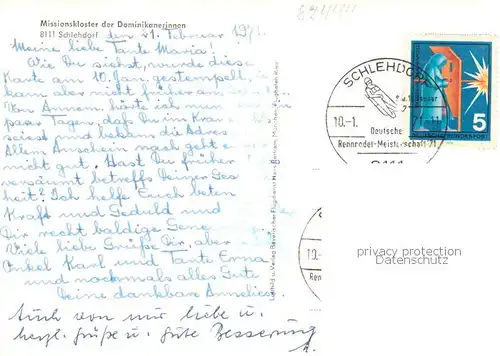 Missionskloster der Dominikanerinnen
8111 Schlehdorf
den 21. Februar 1971.
Meine liebe Tante Maria!
Wie Du siehst, wurde diese
Karte am 10. Jan. gestempelt,
kam aber nicht früher an
Von Annemi hörte ich nun
paar Tagen, daß Du im Kran
seiest und bekam die Adres
Allem Anschein nach geht es
nicht gut. Hast Du früher
versäumt betreffs Deiner Ges
heit? Ich helfe Euch beten
Kraft und Geduld und
Dir recht baldige Gene
Viele liebe Grüße Dir, aber
Onkel Karl und Tante Erna
und nochmals alles Gute
Deine dankbare Annelies.
Auch von mir liebe u.
herzl. Grüße u. gute Besserung
SCHLEHDORF
10.-1.
71-11
Deutsche
Rennrodel-Meisterschaft 71
8111
DEUTSCHE BUNDESPOST
5
10.-
Ren
privacy protection
watermarks